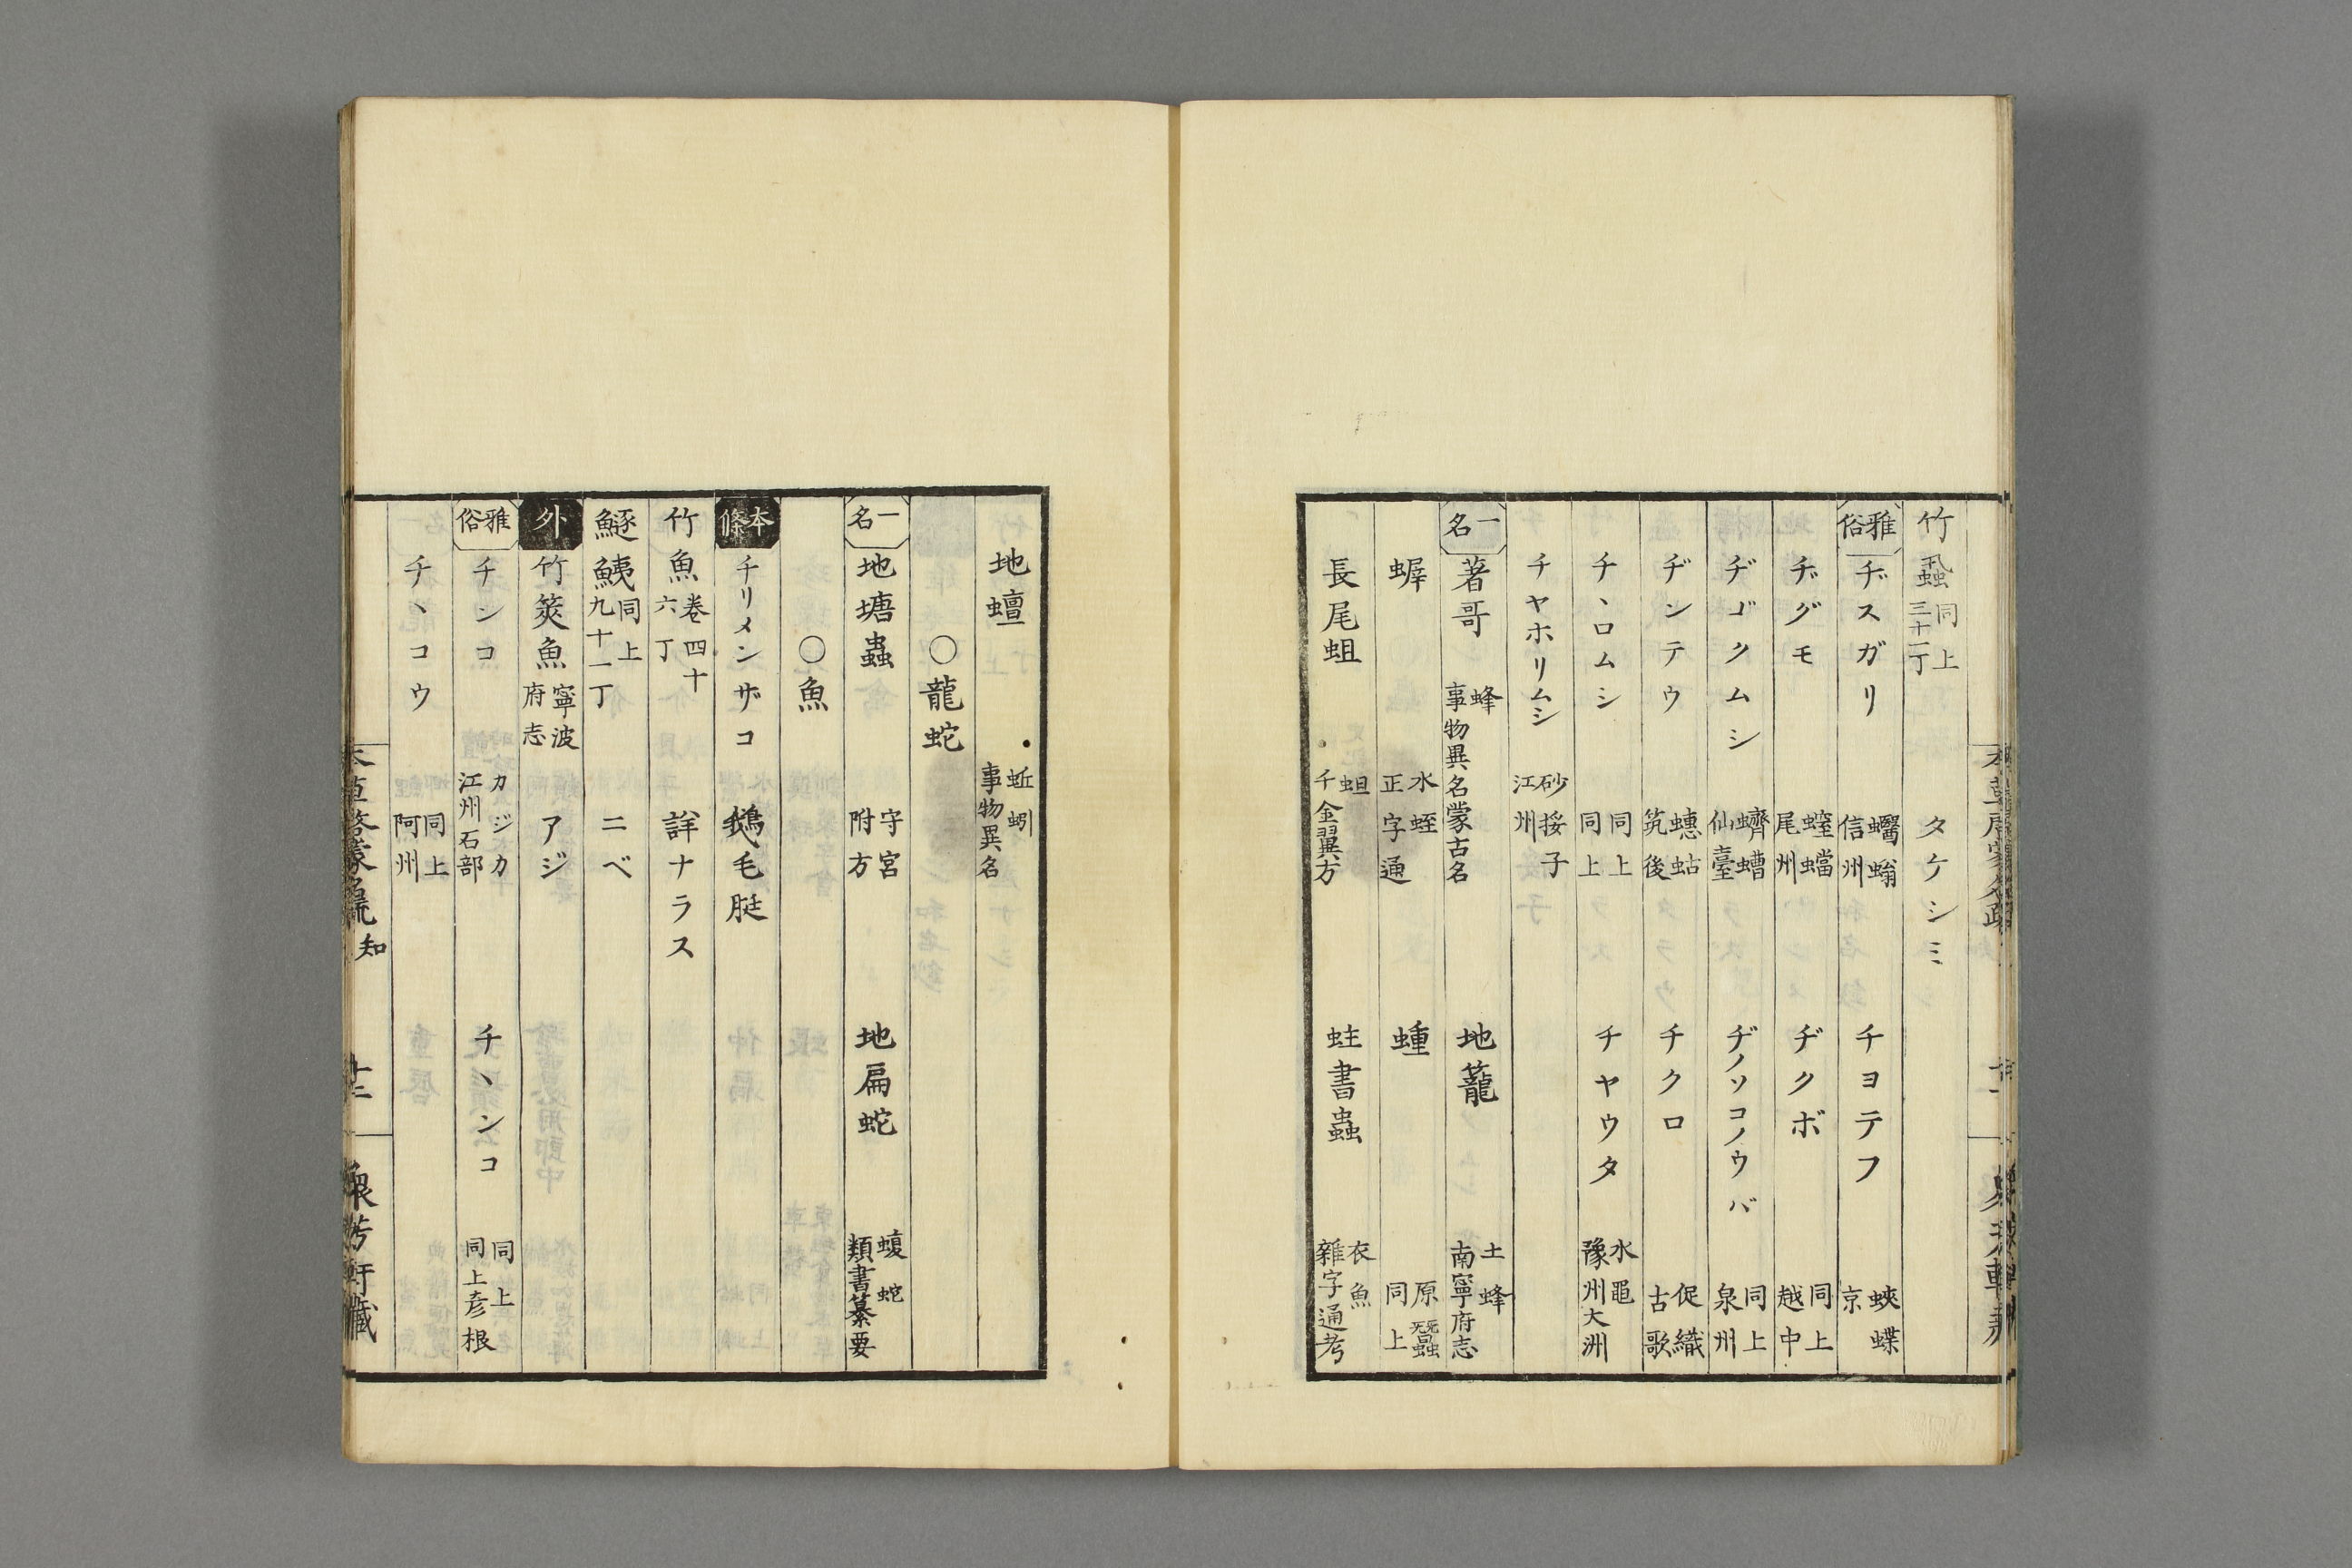 竹蝨 同上三十一丁 タケシミ
雅俗 ヂスガリ 蠮螉信州 チヨテフ 蛺蝶京
ヂグモ 螲蟷尾州 ヂクボ 同上越中
ヂゴクムシ 蠐螬仙臺 ヂノソコノウバ 同上泉州
ヂンテウ 蟪蛄筑後 チクロ 促織古歌
チヽロムシ 同上同上 チヤウタ 水黽豫州大洲
チヤホリムシ 砂挼子江州
一名 著哥 蜂事物異名蒙古名 地蘢 土蜂南寧府志
蠏 水蛭正字通 蝩 原蠶同上
長尾蛆 蛆千金翼方 蛀書蟲 衣魚雜字通考
地蟺 蚯蚓事物異名
○龍蛇
一名 地塘蟲 守宮附方 地扁蛇 蝮蛇類書纂要
○魚
本條 チリメンザコ 鵝毛脡
竹魚 卷四十六丁 詳ナラス
鱁鮧 同上九十一丁 ニベ
外 竹筴魚 寧波府志 アジ
雅俗 チンコ カジカ江州石部 チヽンコ 同上同上彦根
チヽコウ 同上阿州
本草啓蒙名疏 知 十二 衆芳軒藏